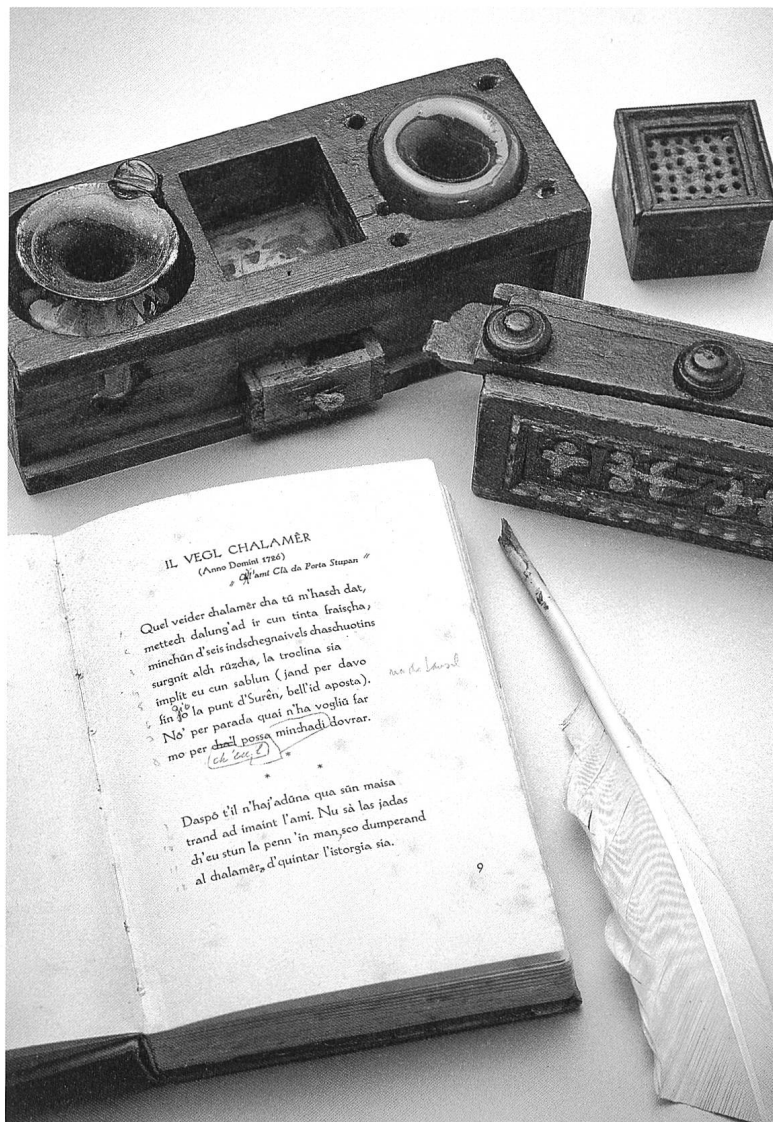 IL VEGL CHALAMÊR
(Anno Domini 1786)
"ami Clà da Porta Stupan"
Quel veider chalamêr cha tü m'hasch dat,
mettech dalung'ad ir cun tinta fraischa,
minchün d'seis indschegnaivels chaschuotins
surgnit alch rüzcha, la troclina sia
implit eu cun sablun (jand per davo
fin jo la punt d'Surên, bell'id aposta).
No' per parada quai n'ha vogliü far
mo per cha'l possa minchadi dovrar.
ch'eu l
* * *
Daspö t'il n'haj'adüna qua sün maisa
trand ad imaint l'ami. Nu sà las jadas
ch'eu stun la penn'in man, sco dumperand
al chalamêr, d'quintar l'istorgia sia.
9